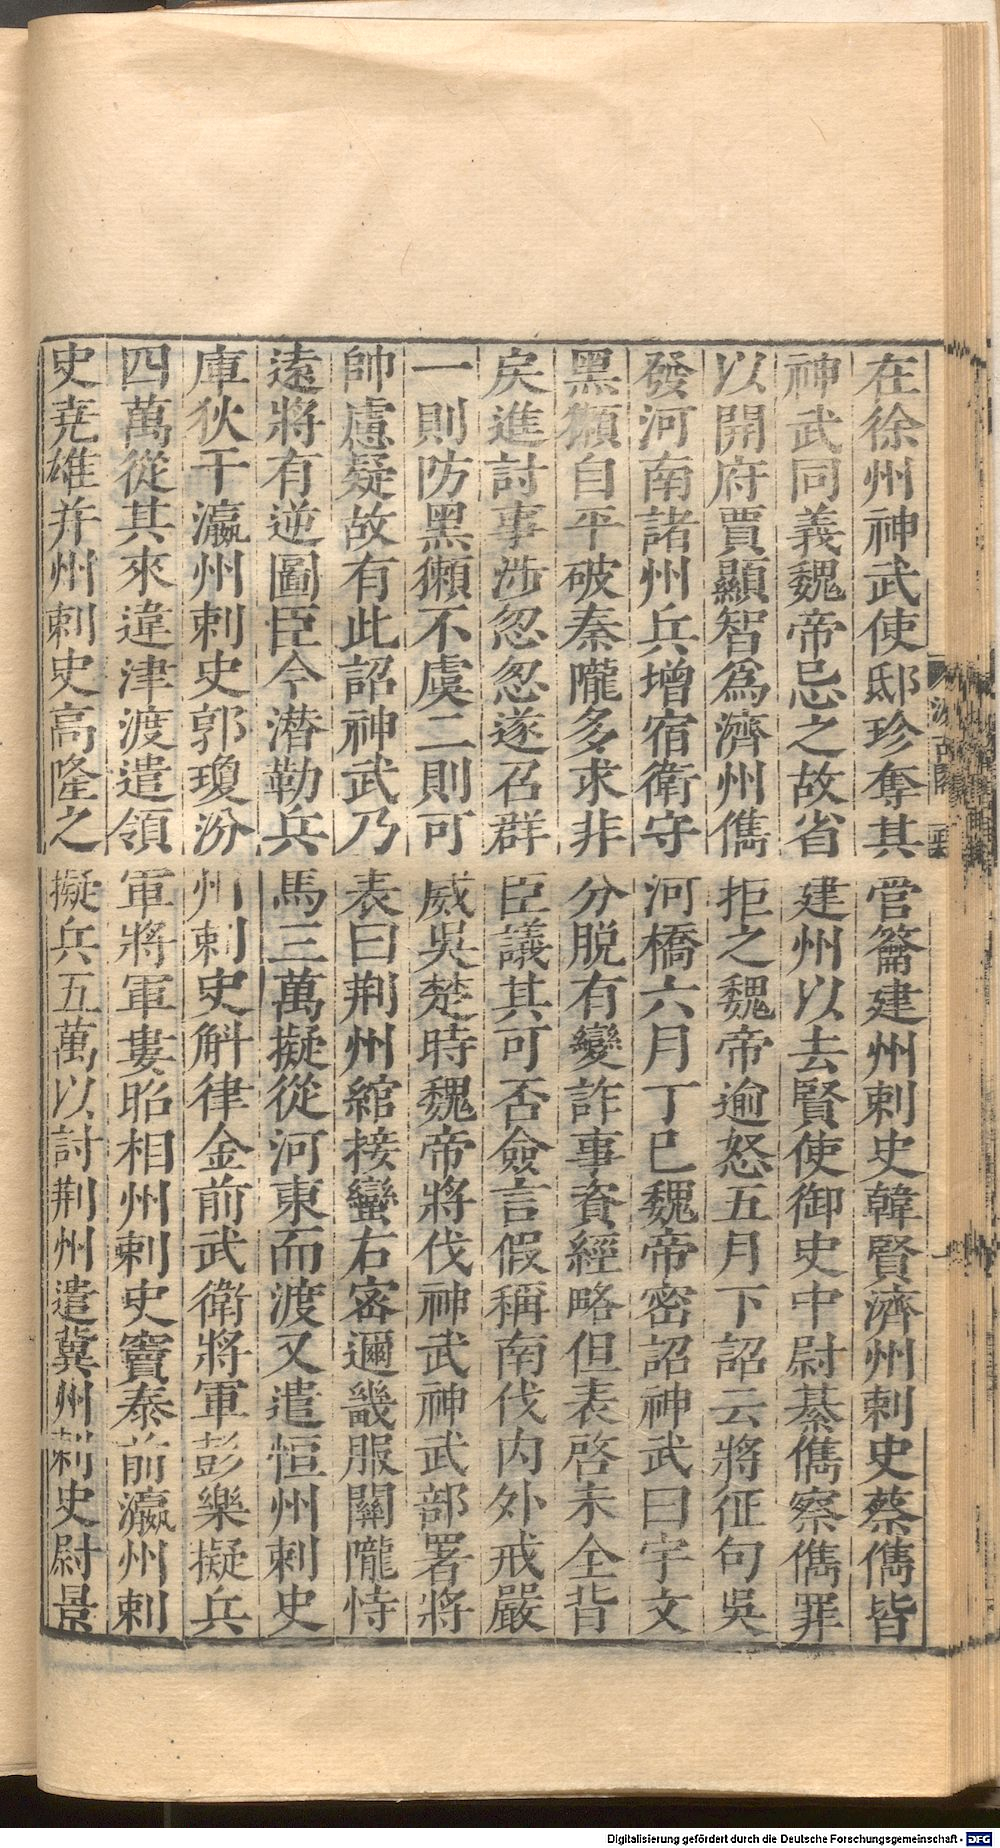 在徐州神武使邸珍奪其管籥建州刺史韓賢濟州刺史蔡儁皆
神武同義魏帝忌之故省建州以去賢使御史中尉綦儁察儁罪
以開府賈顯智爲濟州儁拒之魏帝逾怒五月下詔云將征句吳
發河南諸州兵增宿衛守河橋六月丁巳魏帝密詔神武曰宇文
黑獺自平破秦隴多求非分脫有變詐事資經略但表啓未全背
戾進討事涉忽忽遂召群臣議其可否僉言假稱南伐內外戒嚴
一則防黑獺不虞二則可威吳楚時魏帝將伐神武神武部署將
帥慮疑故有此詔神武乃表曰荆州綰接蠻右密邇畿服關隴恃
遠將有逆圖臣今潜勒兵馬三萬擬從河東而渡又遣恒州刺史
庫狄干瀛州刺史郭瓊汾州刺史斛律金前武衛將軍彭樂擬兵
四萬從其來違津渡遣領軍將軍婁昭相州刺史竇泰前瀛州刺
史尭雄并州刺史高隆之擬兵五萬以討荆州遣冀州刺史尉景
Digitalisierung gefördert durch die Deutsche Forschungsgemeinschaft - DFG